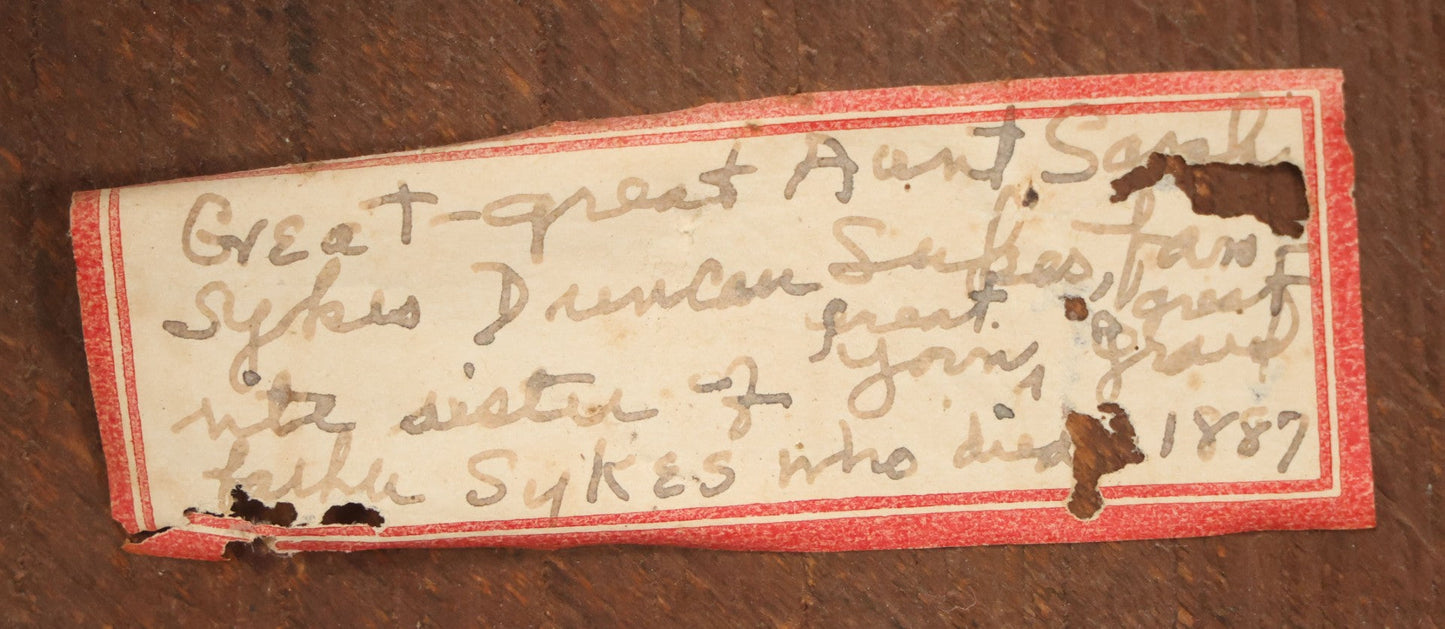 Great-great Aunt Sarah
Sykes Duncan Sykes, favo-
rite sister of your great great grand
father Sykes who died 1887